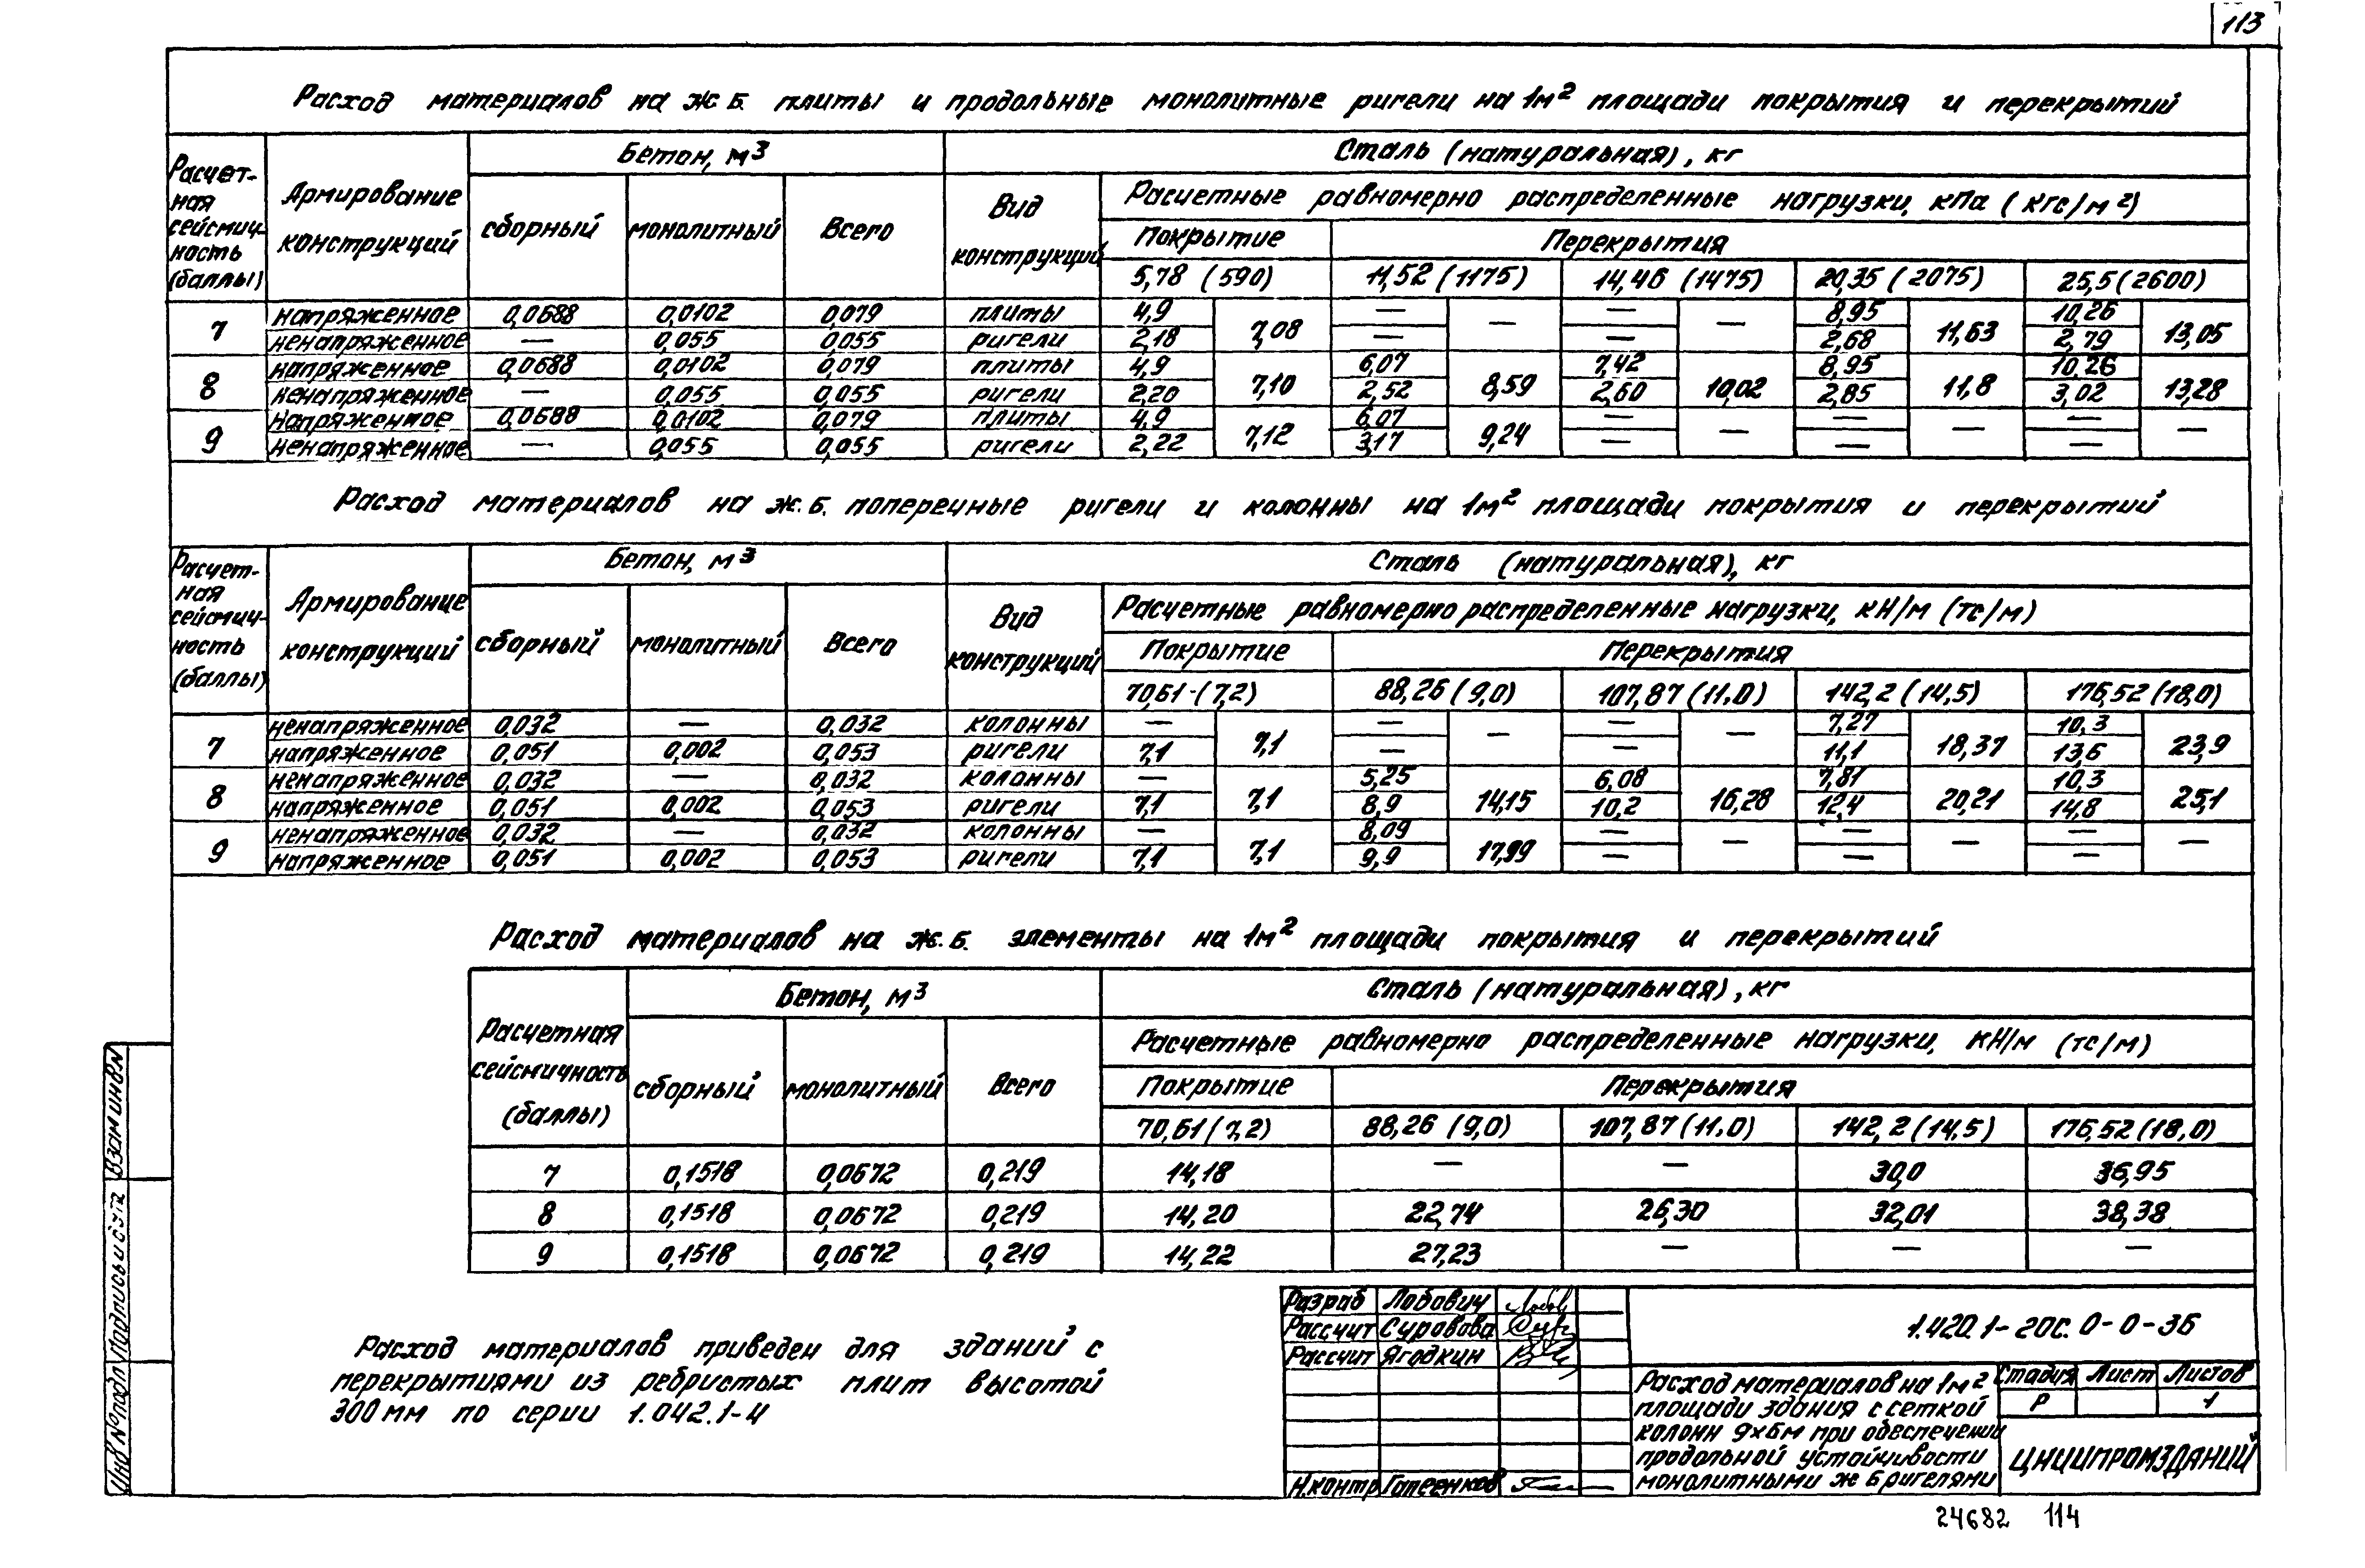 113
Расход материалов на ж.б. плиты и продольные монолитные ригели на 1м² площади покрытия и перекрытий
Расчет-
ная
сейсмич-
ность
(баллы)
Армирование
конструкций
Бетон, м³
сборный
монолитный
Всего
Вид
конструкций
Сталь (натуральная), кг
Расчетные равномерно распределенные нагрузки, кПа (кгс/м²)
Покрытие
Перекрытия
5,78 (590) 11,52 (1175) 14,46 (1475) 20,35 (2075) 25,5 (2600)
7
напряженное 0,0688 0,0102 0,079 плиты 4,9 7,08 — — — — 8,95 11,63 10,26 13,05
ненапряженное — 0,055 0,055 ригели 2,18 — — 2,68 2,79
8
напряженное 0,0688 0,0102 0,079 плиты 4,9 7,10 6,07 8,59 7,42 10,02 8,95 11,8 10,26 13,28
ненапряженное — 0,055 0,055 ригели 2,20 2,52 2,60 2,85 3,02
9
напряженное 0,0688 0,0102 0,079 плиты 4,9 7,12 6,07 9,24 — — — — — —
ненапряженное — 0,055 0,055 ригели 2,22 3,17 — — —
Расход материалов на ж.б. поперечные ригели и колонны на 1м² площади покрытия и перекрытий
Расчет-
ная
сейсмич-
ность
(баллы)
Армирование
конструкций
Бетон, м³
сборный
монолитный
Всего
Вид
конструкций
Сталь (натуральная), кг
Расчетные равномерно распределенные нагрузки, кН/м (тс/м)
Покрытие
Перекрытия
70,61 (7,2) 88,26 (9,0) 107,87 (11.0) 142,2 (14,5) 176,52 (18,0)
7
ненапряженное 0,032 — 0,032 колонны — 7,1 — — — — 7,27 18,37 10,3 23,9
напряженное 0,051 0,002 0,053 ригели 7,1 — — 11,1 13,6
8
ненапряженное 0,032 — 0,032 колонны — 7,1 5,25 14,15 6,08 16,28 7,81 20,21 10,3 25,1
напряженное 0,051 0,002 0,053 ригели 7,1 8,9 10,2 12,4 14,8
9
ненапряженное 0,032 — 0,032 колонны — 7,1 8,09 17,99 — — — — — —
напряженное 0,051 0,002 0,053 ригели 7,1 9,9 — — —
Расход материалов на ж.б. элементы на 1м² площади покрытия и перекрытий
Расчетная
сейсмичность
(баллы)
Бетон, м³
сборный
монолитный
Всего
Сталь (натуральная), кг
Расчетные равномерно распределенные нагрузки, кН/м (тс/м)
Покрытие
Перекрытия
70,61 (7,2) 88,26 (9,0) 107,87 (11.0) 142,2 (14,5) 176,52 (18,0)
7 0,1518 0,0672 0,219 14,18 — — 30,0 36,95
8 0,1518 0,0672 0,219 14,20 22,74 26,30 32,01 38,38
9 0,1518 0,0672 0,219 14,22 27,23 — — —
Расход материалов приведен для зданий с
перекрытиями из ребристых плит высотой
300мм по серии 1.042.1-4
Разраб Лобович
Рассчит Суровова
Рассчит Ягодкин
Н.контр Гапеенков
1.420.1-20с. 0-0-36
Расход материалов на 1м²
площади здания с сеткой
колонн 9х6м при обеспечении
продольной устойчивости
монолитными ж б ригелями
Стадия Лист Листов
Р 1
ЦНИИПРОМЗДАНИЙ
24682 114
Инв № подл Подпись и дата Взам инв N